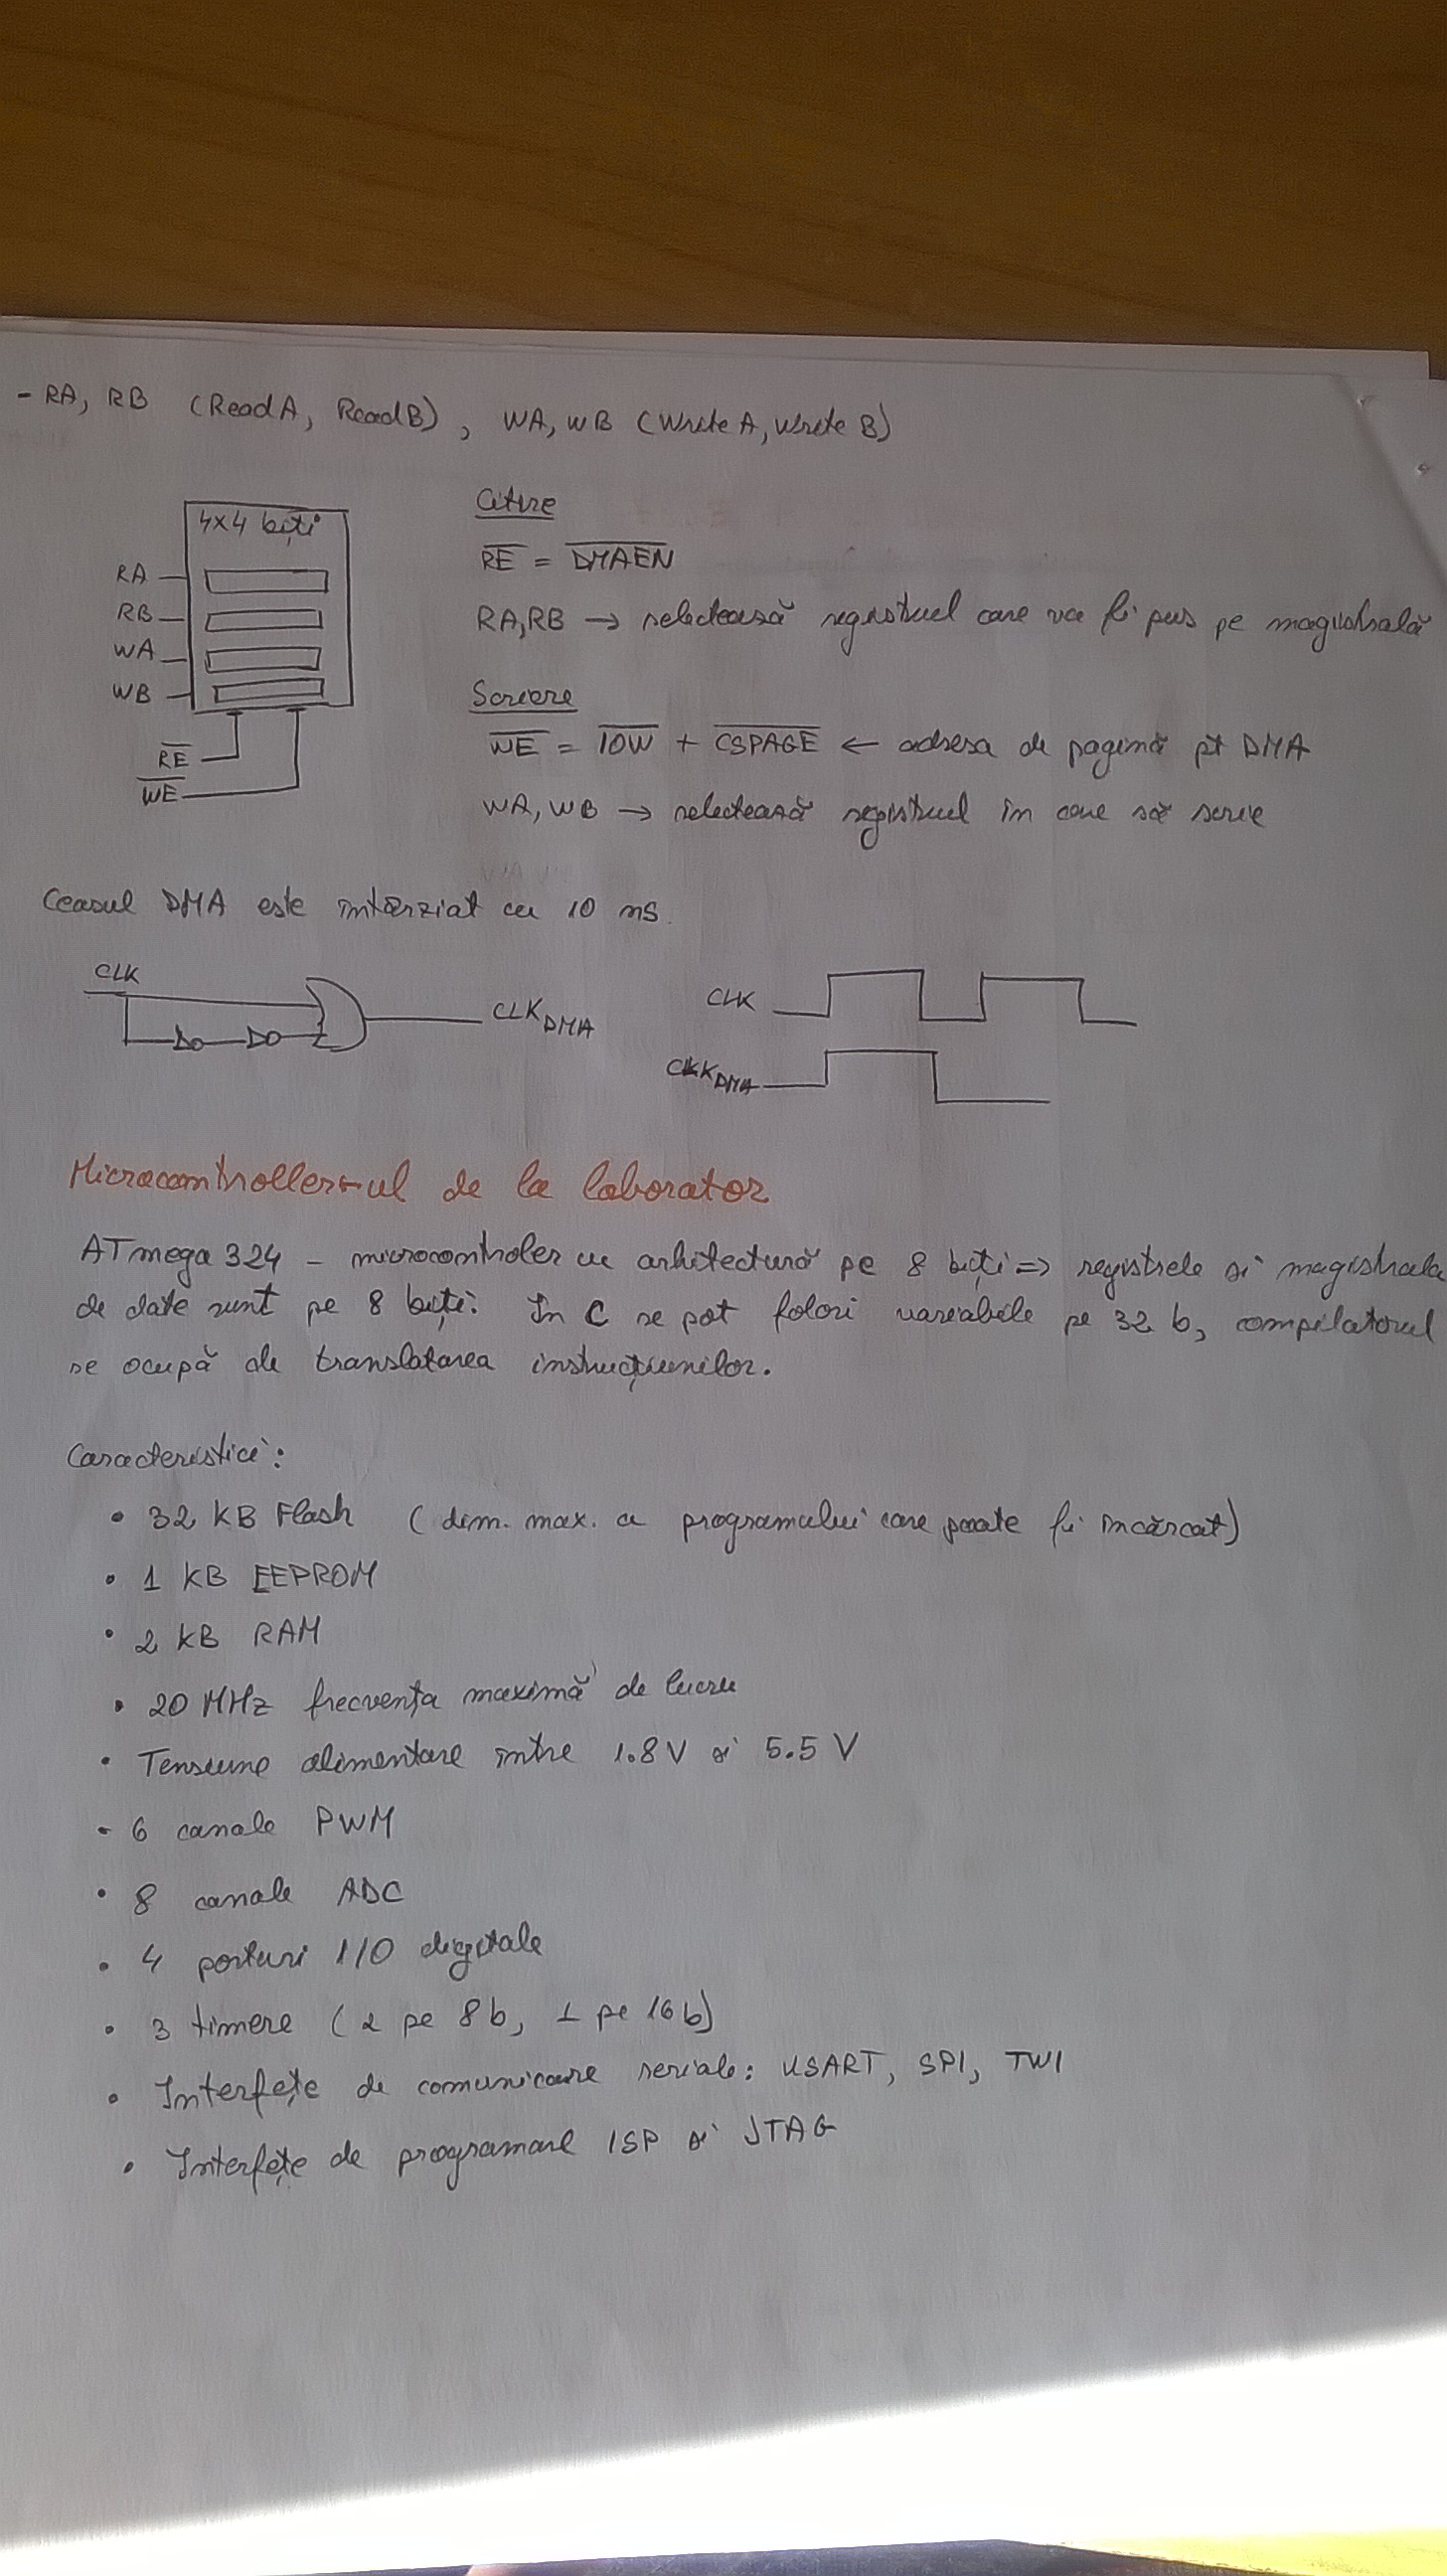 - RA, RB (Read A, Read B), WA, WB (Write A, Write B)
4x4 biți
RA
RB
WA
WB
R̅E̅
W̅E̅
Citire
R̅E̅ = D̅M̅A̅E̅N̅
RA,RB → selectează registrul care va fi pus pe magistrală
Scriere
W̅E̅ = I̅O̅W̅ + C̅S̅P̅A̅G̅E̅ ← adresa de pagină pt DMA
WA, WB → selectează registrul în care să scrie
Ceasul DMA este întârziat cu 10 ns.
CLK
CLK DMA
CLK
CLK DMA
Microcontroller-ul de la laborator
ATmega 324 - microcontroler cu arhitectură pe 8 biți => registrele și magistrala
de date sunt pe 8 biți. În C se pot folosi variabile pe 32 b, compilatorul
se ocupă de translatarea instrucțiunilor.
Caracteristici:
• 32 KB Flash (dim. max. a programului care poate fi încărcat)
• 1 KB EEPROM
• 2 KB RAM
• 20 MHz frecvența maximă de lucru
• Tensiune alimentare între 1.8V și 5.5 V
- 6 canale PWM
• 8 canale ADC
• 4 porturi I/O digitale
• 3 timere (2 pe 8b, 1 pe 16b)
• Interfețe de comunicare seriale: USART, SPI, TWI
• Interfețe de programare ISP și JTAG